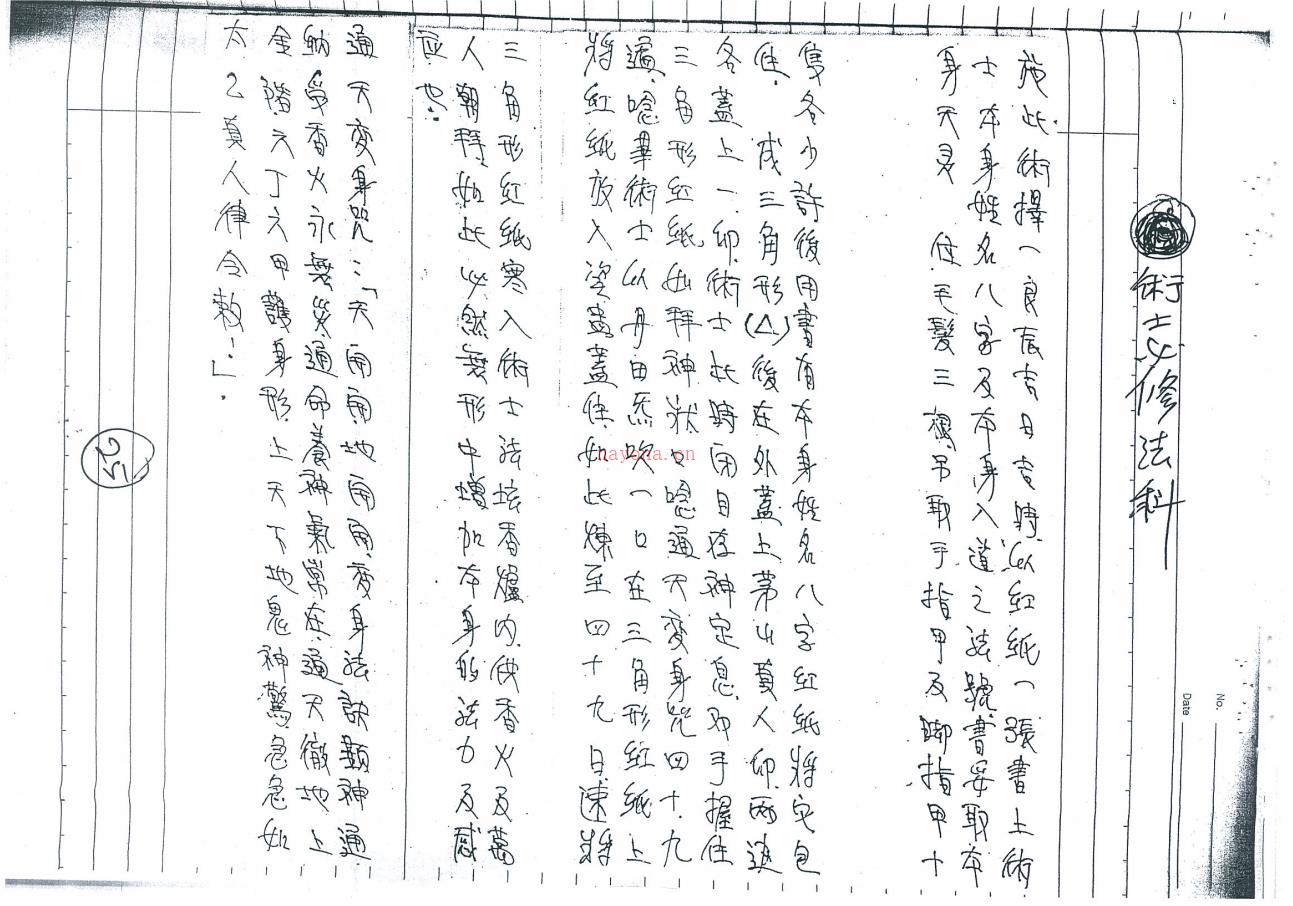 術士必修法科
No.
Date
施此術擇一良辰吉日吉時,以紅紙一張書上術
士本身姓名八字及本身入道之法號,書妥取本
身天靈 住毛髮三根,另取手指甲及脚指甲十
隻各少許後用書有本身姓名八字紅紙將它包
住. 成三角形(△)後在外蓋上茅山真人印,兩邊
各蓋上一印,術士此時閉目存神定息,双手握住
三角形紅紙如拜神狀口唸通天变身咒四十九
遍,唸畢術士以丹田炁吹一口在三角形紅紙上
將紅紙放入瓷盅蓋住,如此煉至四十九日,連將
三角形紅紙塞入術士法坛香爐内,供香火及萬
人朝拜,如此必然無形中增加本身的法力及感
应也.
通天变身咒:「天甪甪,地甪甪,变身法訣顯神通
納受香火永無災,通命養神氣常在,通天徹地上
金階,六丁六甲護身形,上天下地鬼神驚,急急如
太乙真人律令敕!」.
25
nayona.cn